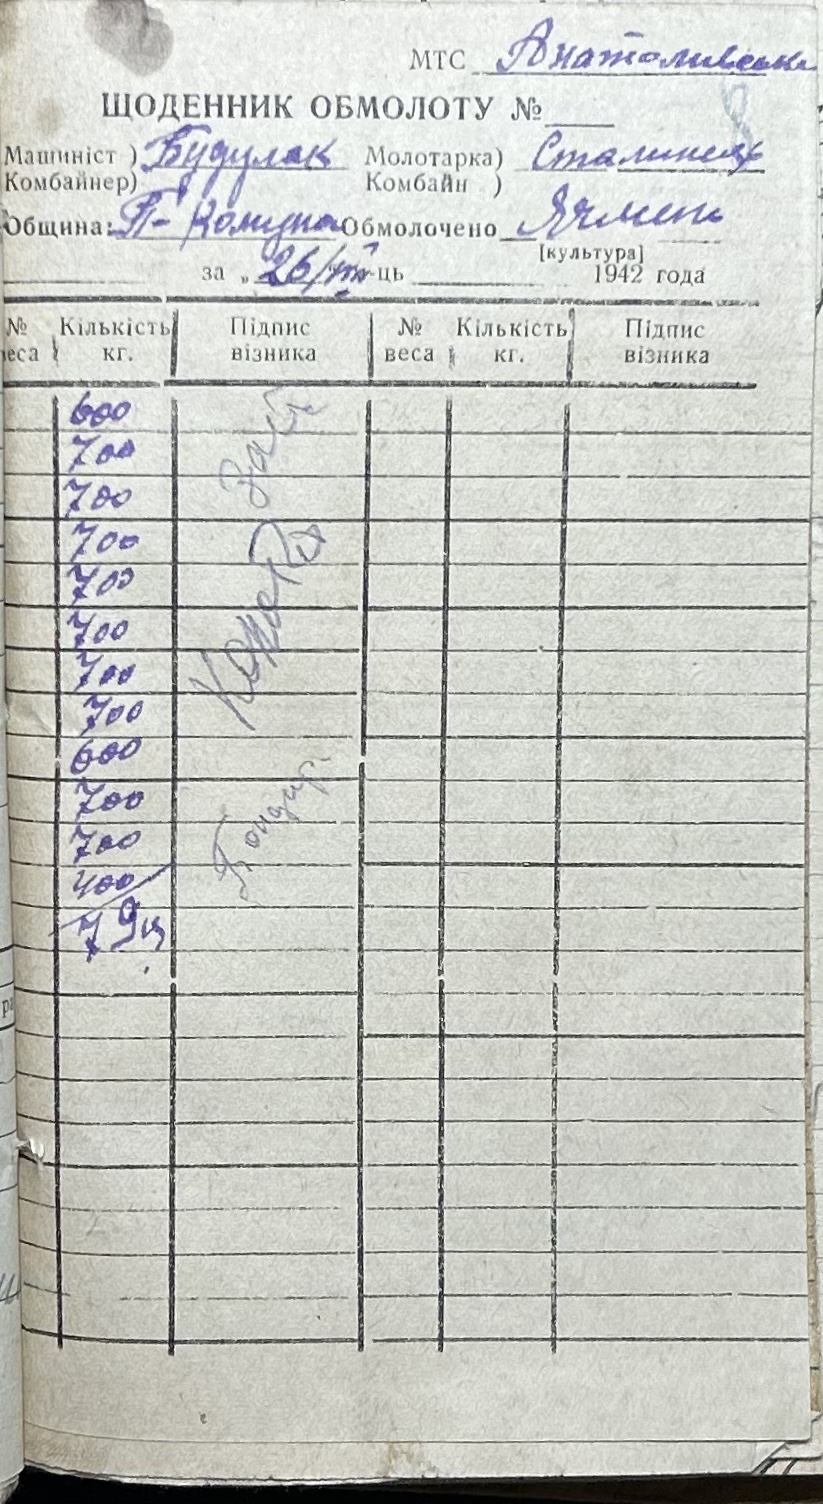 МТС Анатоливськ
ЩОДЕННИК ОБМОЛОТУ №
8
Машиніст ) Будулак Молотарка) Сталинец
Комбайнер) Комбайн )
Община: Обмолочено Ячмень
[культура]
за „ 26/VII -ць 1942 года
№ Кількість Підпис № Кількість Підпис
веса кг. візника веса кг. візника
600
700
700
700
700
700
700
700
600
700
700
400
79ц